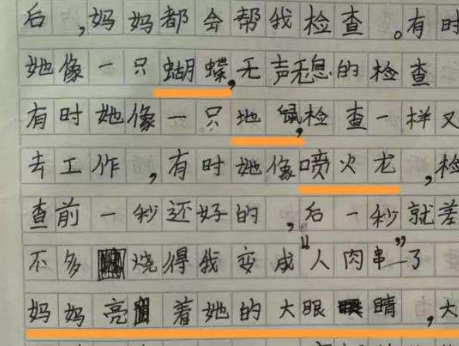 后,妈妈都会帮我检查。有时
她像一只蝴蝶,无声无息的检查
有时她像一只地鼠,检查一样又
去工作,有时她像喷火龙,检
查前一秒还好的,后一秒就差
不多烧得我变成“人肉串”了
妈妈亮着她的大眼睛,大